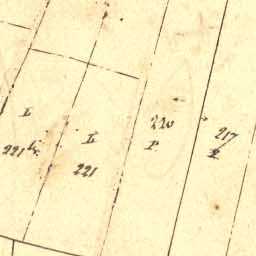 L
221
L
221
210
P.
217
P.